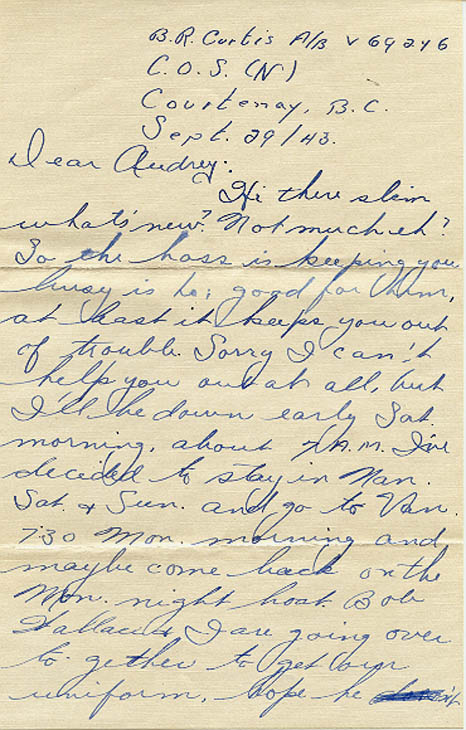 B.R. Curtis A/B V 69246
C.O.S. (N)
Courtenay, B.C.
Sept. 29/43.
Dear Audrey:
Hi there slim
what's new? Not much eh?
So the boss is keeping you
busy is he; good for him,
at least it keeps you out
of trouble. Sorry I can't
help you out at all, but
I'll be down early Sat.
morning, about 7 A.M. I've
decided to stay in Nan.
Sat. & Sun. and go to Van.
7:30 Mon. morning and
maybe come back on the
Mon. night boat. Bob
& I are going over
to gether to get our
uniform, hope he